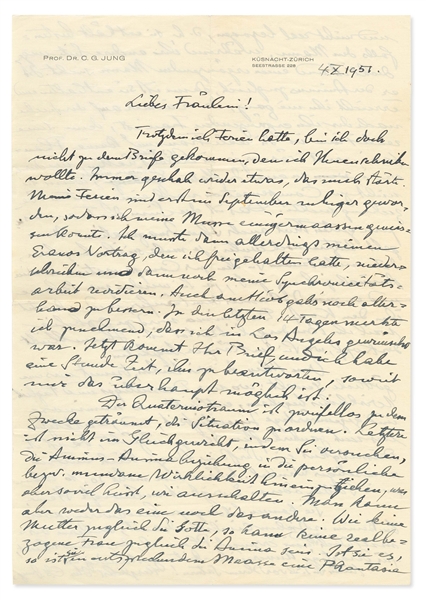 PROF. DR. C. G. JUNG
KÜSNACHT-ZÜRICH
SEESTRASSE 228
4.X 1951.
Liebes Fräulein!
Trotzdem ich Ferien hatte, bin ich doch
nicht zu dem Brief gekommen, den ich Ihnen schreiben
wollte. Immer geschah wieder etwas, das mich störte.
Meine Ferien sind erst im September ruhiger gewor-
den, sodass ich meine Musse einigermaassen genies-
sen konnt. Ich musst dann allerdings meinen
Eranos Vortrag, den ich frei gehalten hatte, nieder-
schreiben und dann noch meine Synchronicitäts-
arbeit revidieren. Auch am Haus gabs noch aller-
hand zu bessern. In den letzten 14 Tagen merkte
ich zunehmend, dass ich in Los Angeles gewünscht
war. Jetzt kommt Ihr Brief, und ich habe
eine Stunde Zeit, ihn zu beantworten, soweit
mir das überhaupt möglich ist.
Der Quaternotraum ist zweifellos zu dem
Zwecke geträumt, die Situation zu ordnen. Letztere
ist nicht im Gleichgewicht, indem Sie versuchen,
die Animus-Anima beziehung in die persönliche
bezw. mundane Wirklichkeit hineinzuziehen, was
aber soviel heisst, wie ausschalten. Man kann
aber weder das eine noch das andere. Wie keine
Mutter zugleich die Gottin, so kann keine real be-
zogene Frau zugleich die Anima sein. Ist sie es,
so ist sie in entsprechendem Maasse eine Phantasie